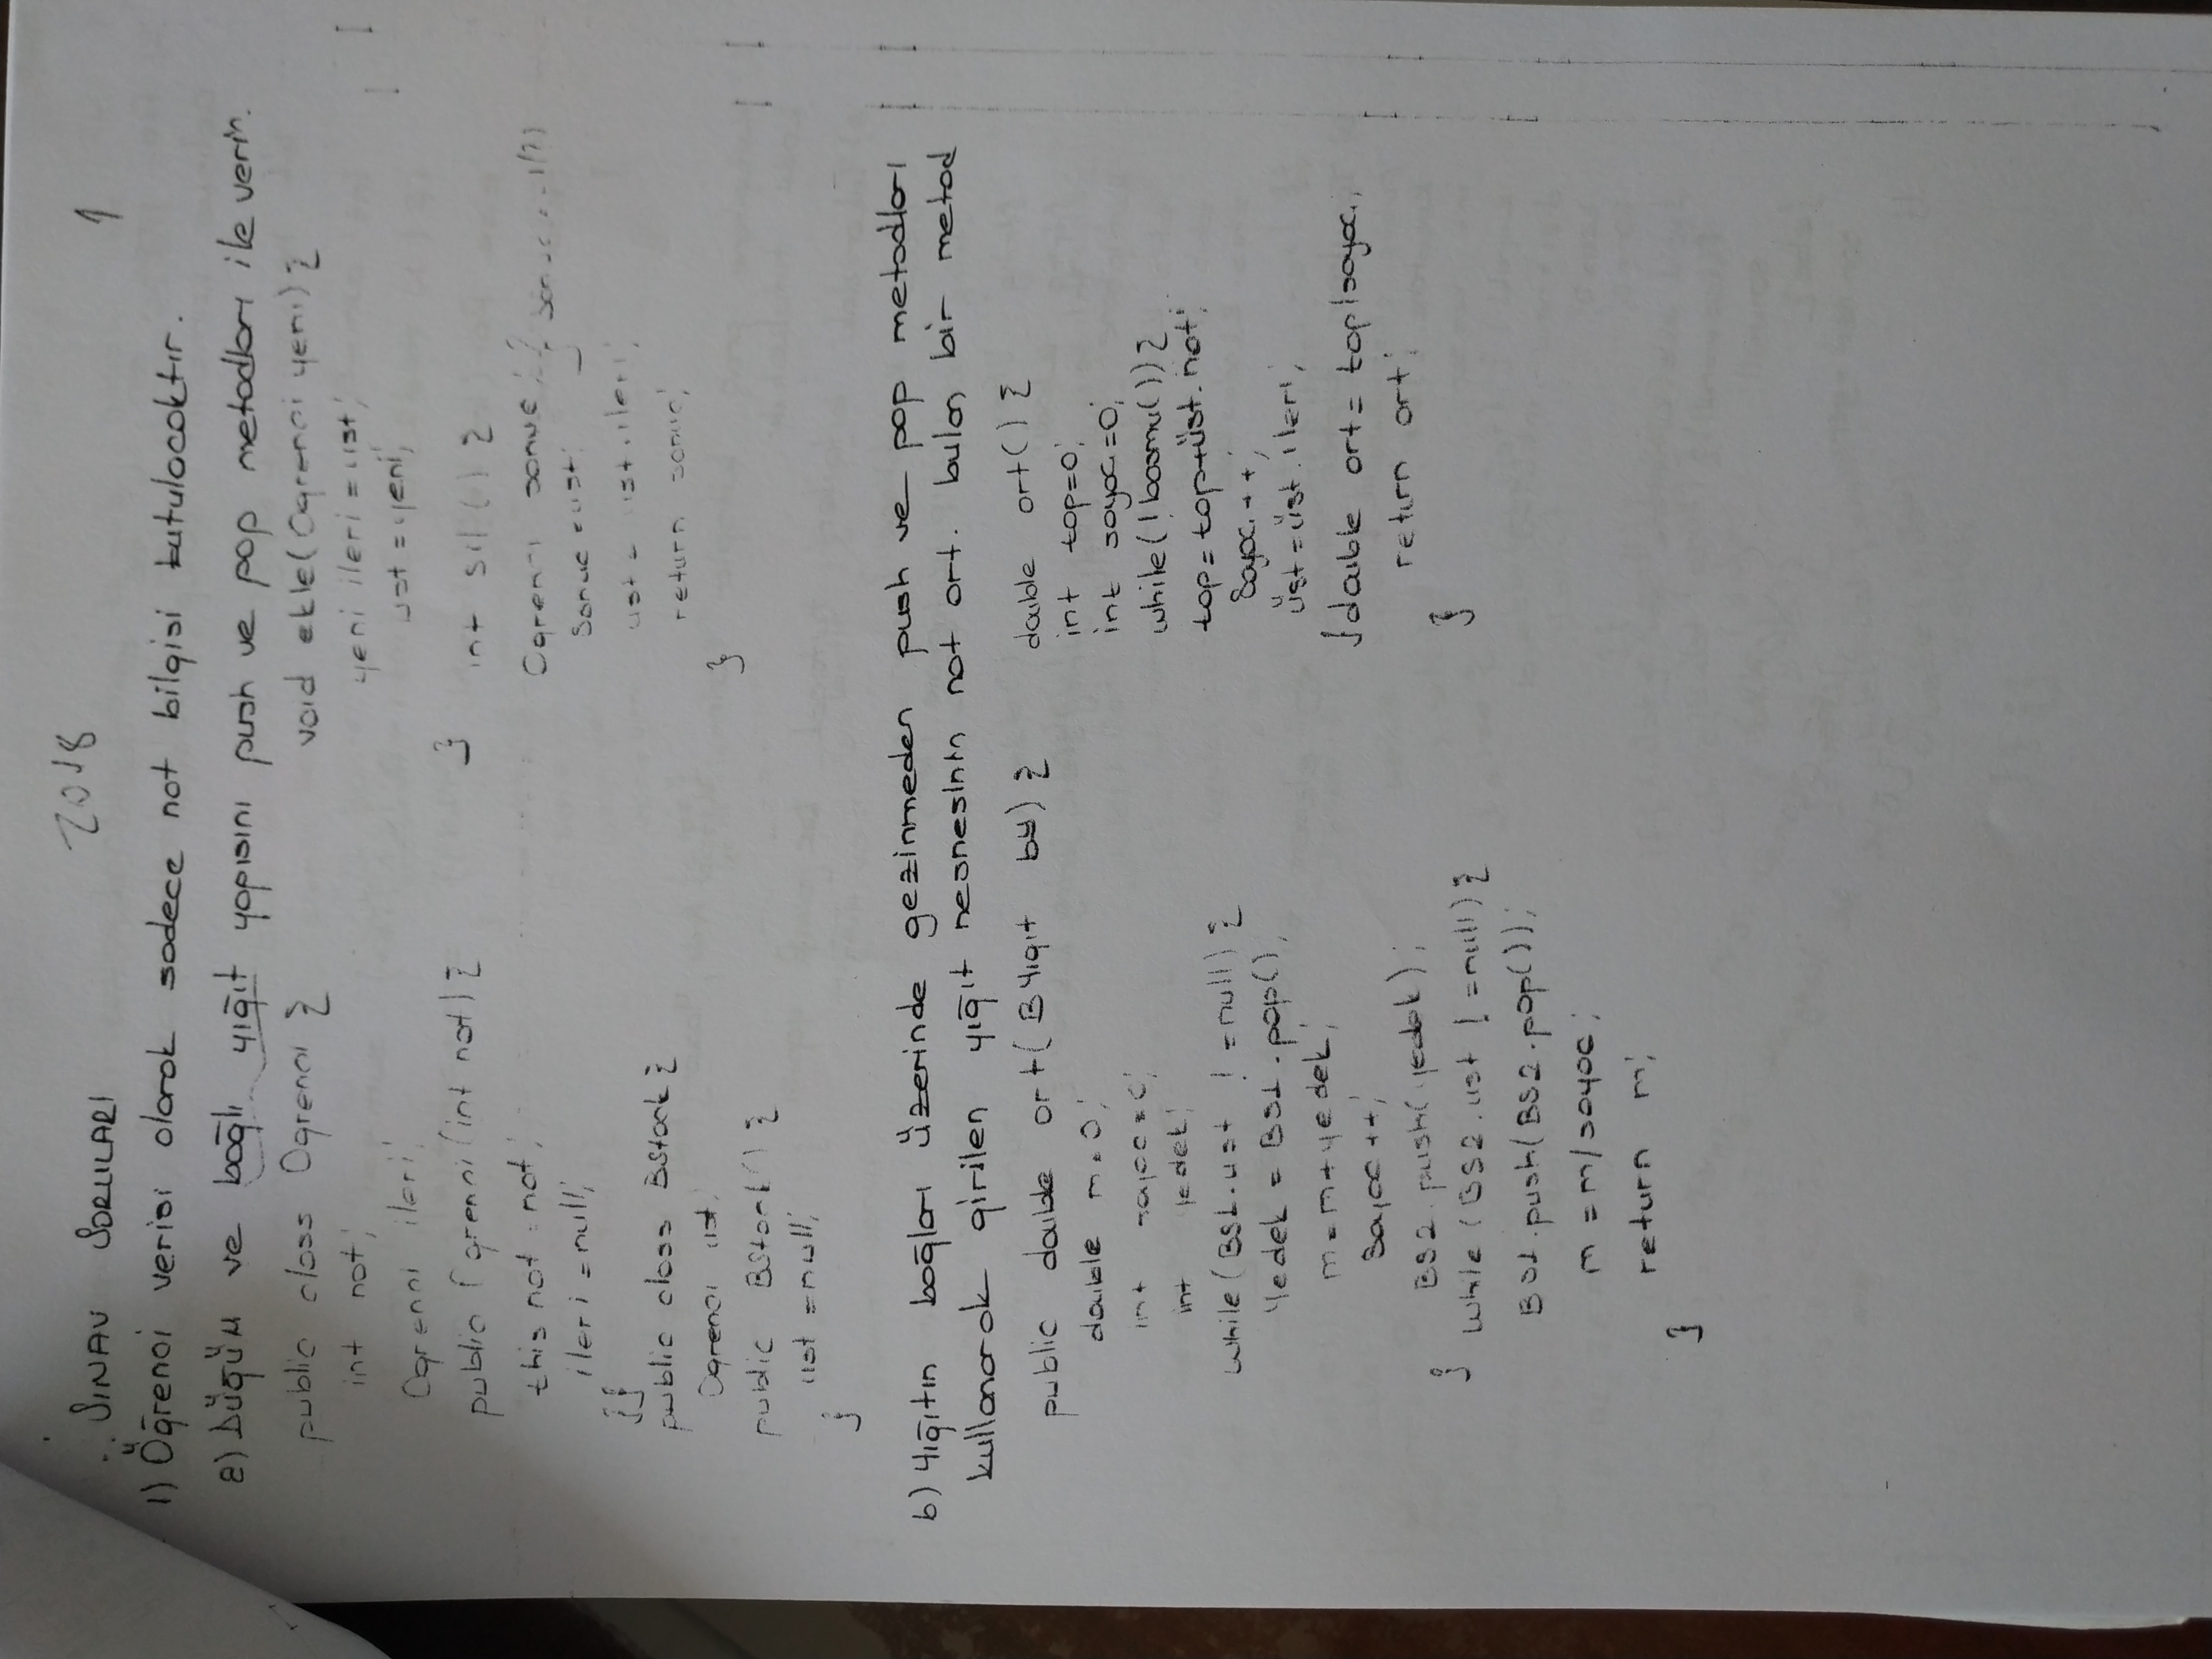 2018
1
SINAV SORULARI
1) Öğrenci verisi olarak sadece not bilgisi tutulacaktır.
a) Düğüm ve bağlı yığıt yapısını push ve pop metodları ile verin.
public class Ogrenci {
int not;
Ogrenci ileri;
public Ogrenci (int not) {
this not = not;
ileri = null;
}}
public class BStack {
Ogrenci üst;
public BStack () {
üst = null;
}
void ekle(Ogrenci yeni) {
yeni ileri = üst;
üst = yeni;
}
int sil () {
Ogrenci sonuc
sonuc = üst;
üst = üst.ileri;
return sonuc;
}
b) Yığıtın bağları üzerinde gezinmeden push ve pop metodları
kullanarak girilen yığıt nesnesinin not ort. bulan bir metod
public double ort( BYigit by) {
double m=0;
int sayac=0;
int yedek;
while (BS1.ust != null) {
Yedek = BS1.pop();
m = m+yedek;
Sayac++;
BS2.push(yedek);
} while (BS2.ust != null) {
BS1.push(BS2.pop());
m = m/sayac;
return m;
}
double ort() {
int top=0;
int sayac=0;
while(!bosmu()) {
top=top+üst.not;
Sayac++;
üst=üst.ileri;
}double ort= top/sayac;
return ort;
}